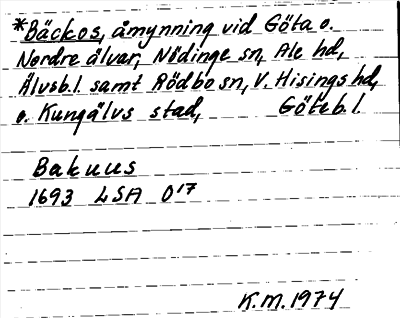 *Bäckos, åmynning vid Göta o.
Nordre älvar, Nödinge sn, Ale hd,
Älvsb.l. samt Rödbo sn, V. Hisings hd,
o. Kungälvs stad, Göteb.l.
Bakuus
1693 LSA O17
K.M.1974